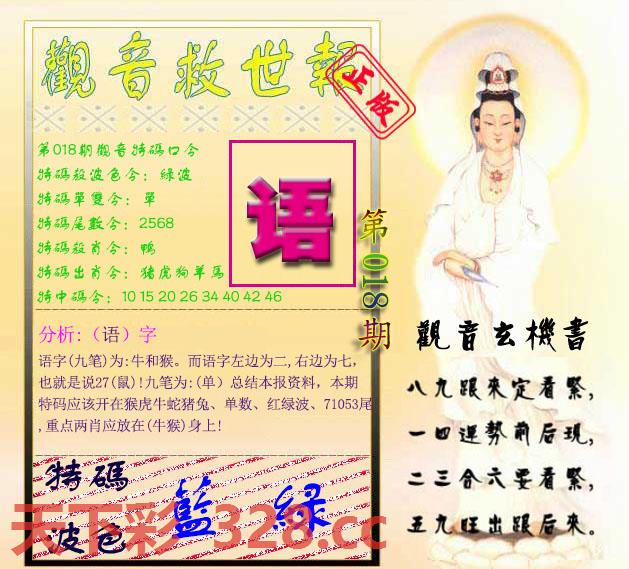 觀音救世報
正版
第018期觀音特碼口令
特碼殺波色令：綠波
特碼單雙令：單
特碼尾數令：2568
特碼殺肖令：鴨
特碼出肖令：猪虎狗羊馬
特中碼令：10 15 20 26 34 40 42 46
语
第018期
分析:（语）字
语字(九笔)为:牛和猴。而语字左边为二,右边为七,
也就是说27(鼠)!九笔为:(单）总结本报资料，本期
特码应该开在猴虎牛蛇猪兔、单数、红绿波、71053尾
,重点两肖应放在(牛猴)身上!
特碼
波色
藍 綠
天下彩-328.cc
觀音玄機書
八九跟來定看緊,
一四運勢前后現,
二三合六要看緊,
五九旺出跟后來。